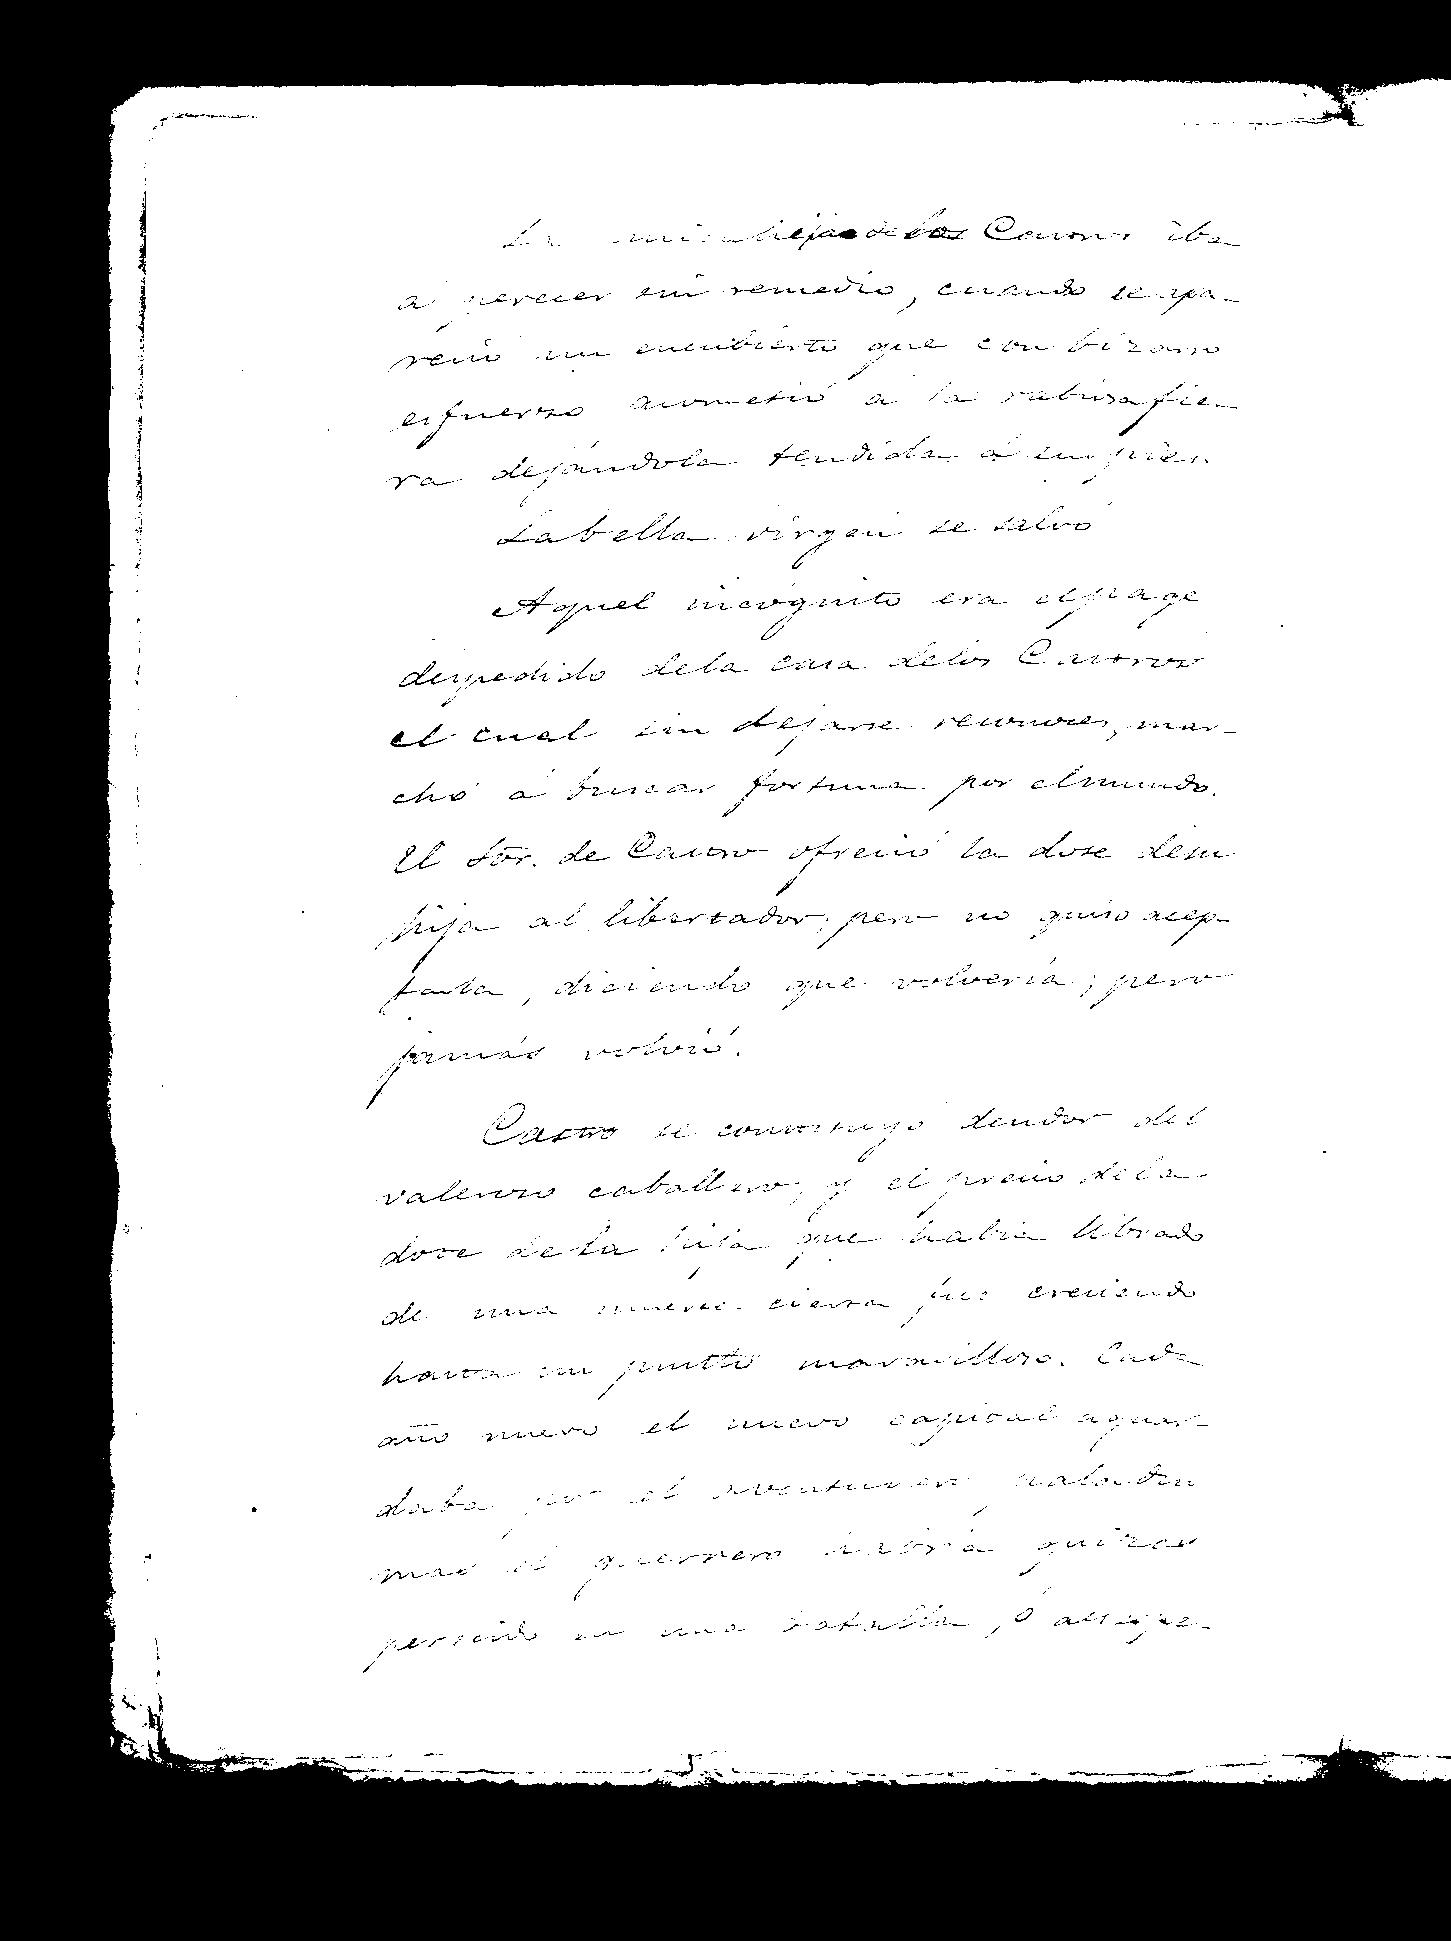 La única hija de los Castros iba
á perecer sin remedio, cuando se apa-
reció un encubierto que con bizarro
esfuerzo acometió á la rabiosa fie-
ra dejándola tendida á sus pies.
La bella virgen se salvó
Aquel incógnito era el page
despedido de la casa de los Castros
el cual sin dejarse reconocer, mar-
chó á buscar fortuna por el mundo.
El Sor. de Castro ofreció la dote de su
hija al libertador; pero no quiso acep-
tarla, diciendo que volvería; pero
jamás volvió.
Castro se constituyó deudor del
valeroso caballero, y el precio de la
dote de la hija que habia librado
de una muerte cierta fue creciendo
hasta un punto maravilloso. Cada
año nuevo el nuevo capital aguar-
daba por el aventurero paladin
mas el guerrero habria quizas
perecido en una batalla, ó